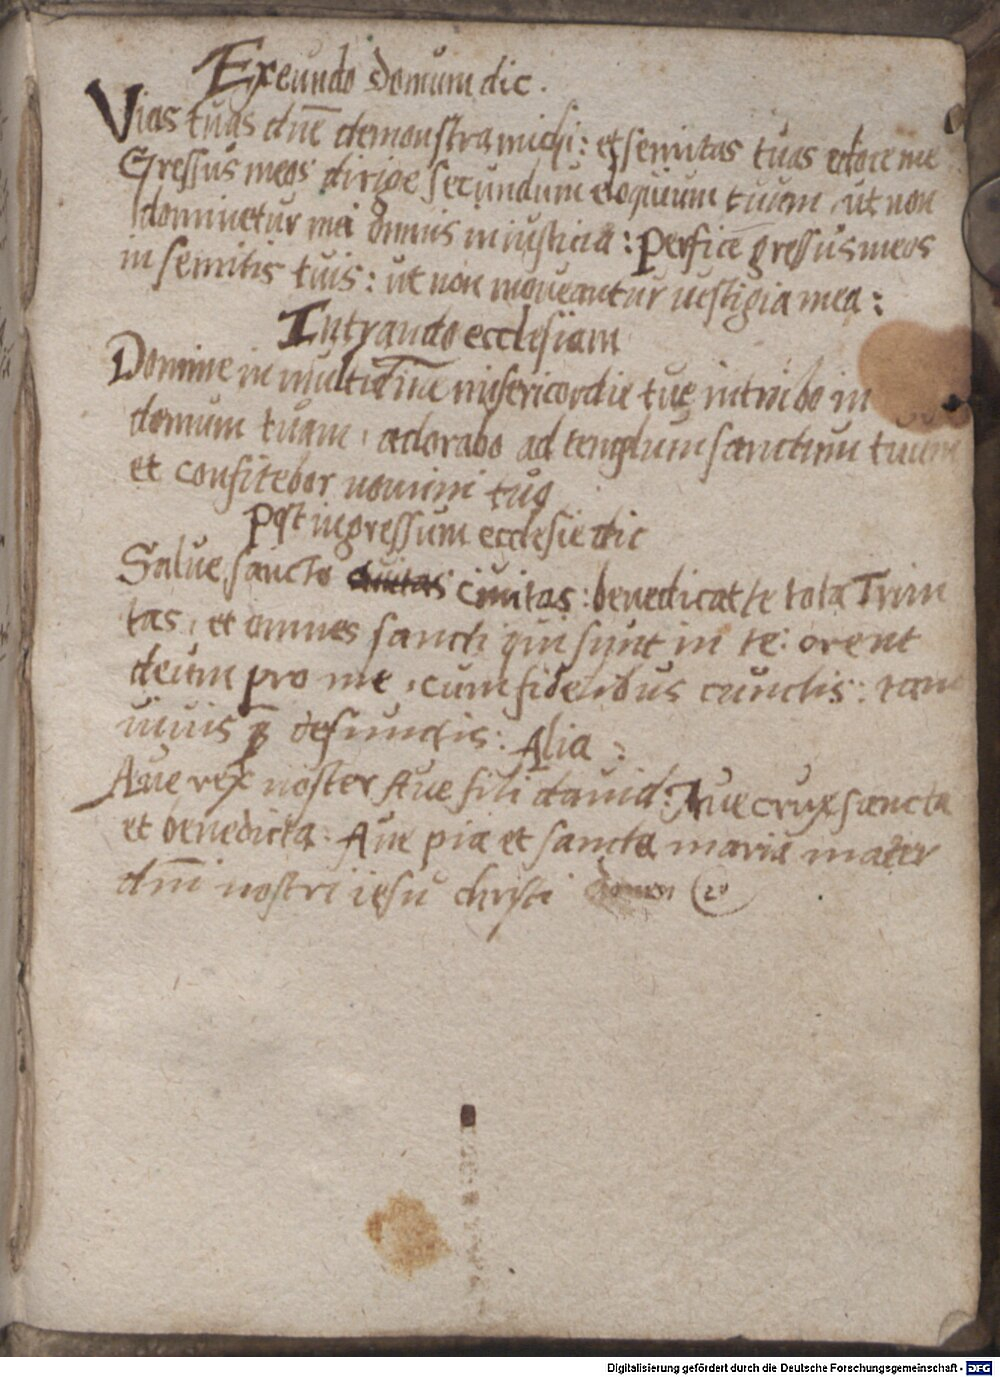 Exeundo domum dic.
Vias tuas dn̄e demonstra michi: et semitas tuas edoce me
Gressus meos dirige secundum eloquium tuum, ut non
dominetur mei omnis iniusticia: Perfice gressus meos
in semitis tuis: ut non moveantur vestigia mea:
Intrando ecclesiam
Domine in multitudīe misericordie tue intrabo in
domum tuam, adorabo ad templum sanctum tuum
et confitebor nomini tuo
Post ingressum ecclesie dic
Salue, sancta ciuitas: benedicat te tota Trini
tas, et omnes sancti qui sunt in te: orent
deum pro me, cum fidelibus cunctis: tam
uiuis q̄ defunctis: Alia:
Aue rex noster Aue fili dauid: Aue crux sancta
et benedicta. Aue pia et sancta maria mater
dn̄i nostri iesu christi
Digitalisierung gefördert durch die Deutsche Forschungsgemeinschaft - DFG